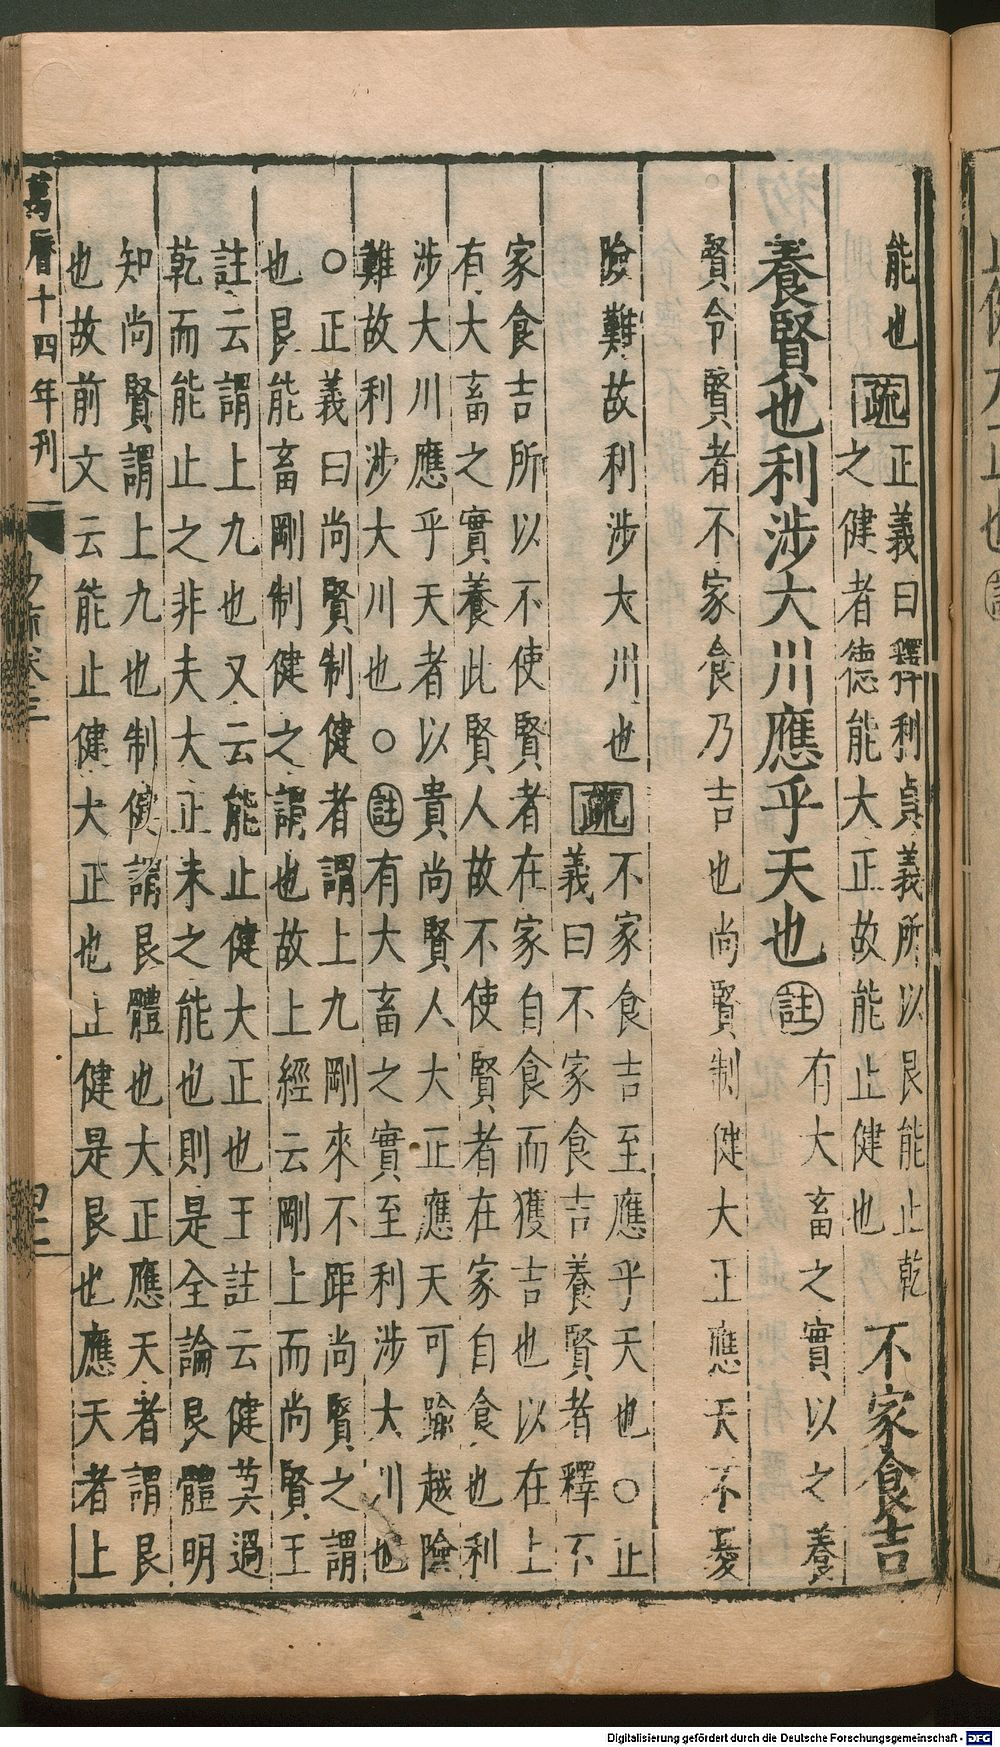 能也疏正義曰釋利貞義所以艮能止乾
之健者德能大正故能止健也
不家食吉
養賢也利涉大川應乎天也註有大畜之實以之養
賢令賢者不家食乃吉也尚賢制健大正應天不憂
險難故利涉大川也疏不家食吉至應乎天也○正
義曰不家食吉養賢者釋不
家食吉所以不使賢者在家自食而獲吉也以在上
有大畜之實養此賢人故不使賢者在家自食也利
涉大川應乎天者以貴尚賢人大正應天可踰越險
難故利涉大川也○註有大畜之實至利涉大川也
○正義曰尚賢制健者謂上九剛來不距尚賢之謂
也艮能畜剛制健之謂也故上經云剛上而尚賢王
註云謂上九也又云能止健大正也王註云健莫過
乾而能止之非夫大正未之能也則是全論艮體明
知尚賢謂上九也制健謂艮體也大正應天者謂艮
也故前文云能止健大正也止健是艮也應天者上
萬曆十四年刊
易疏卷三
Digitalisierung gefördert durch die Deutsche Forschungsgemeinschaft - DFG